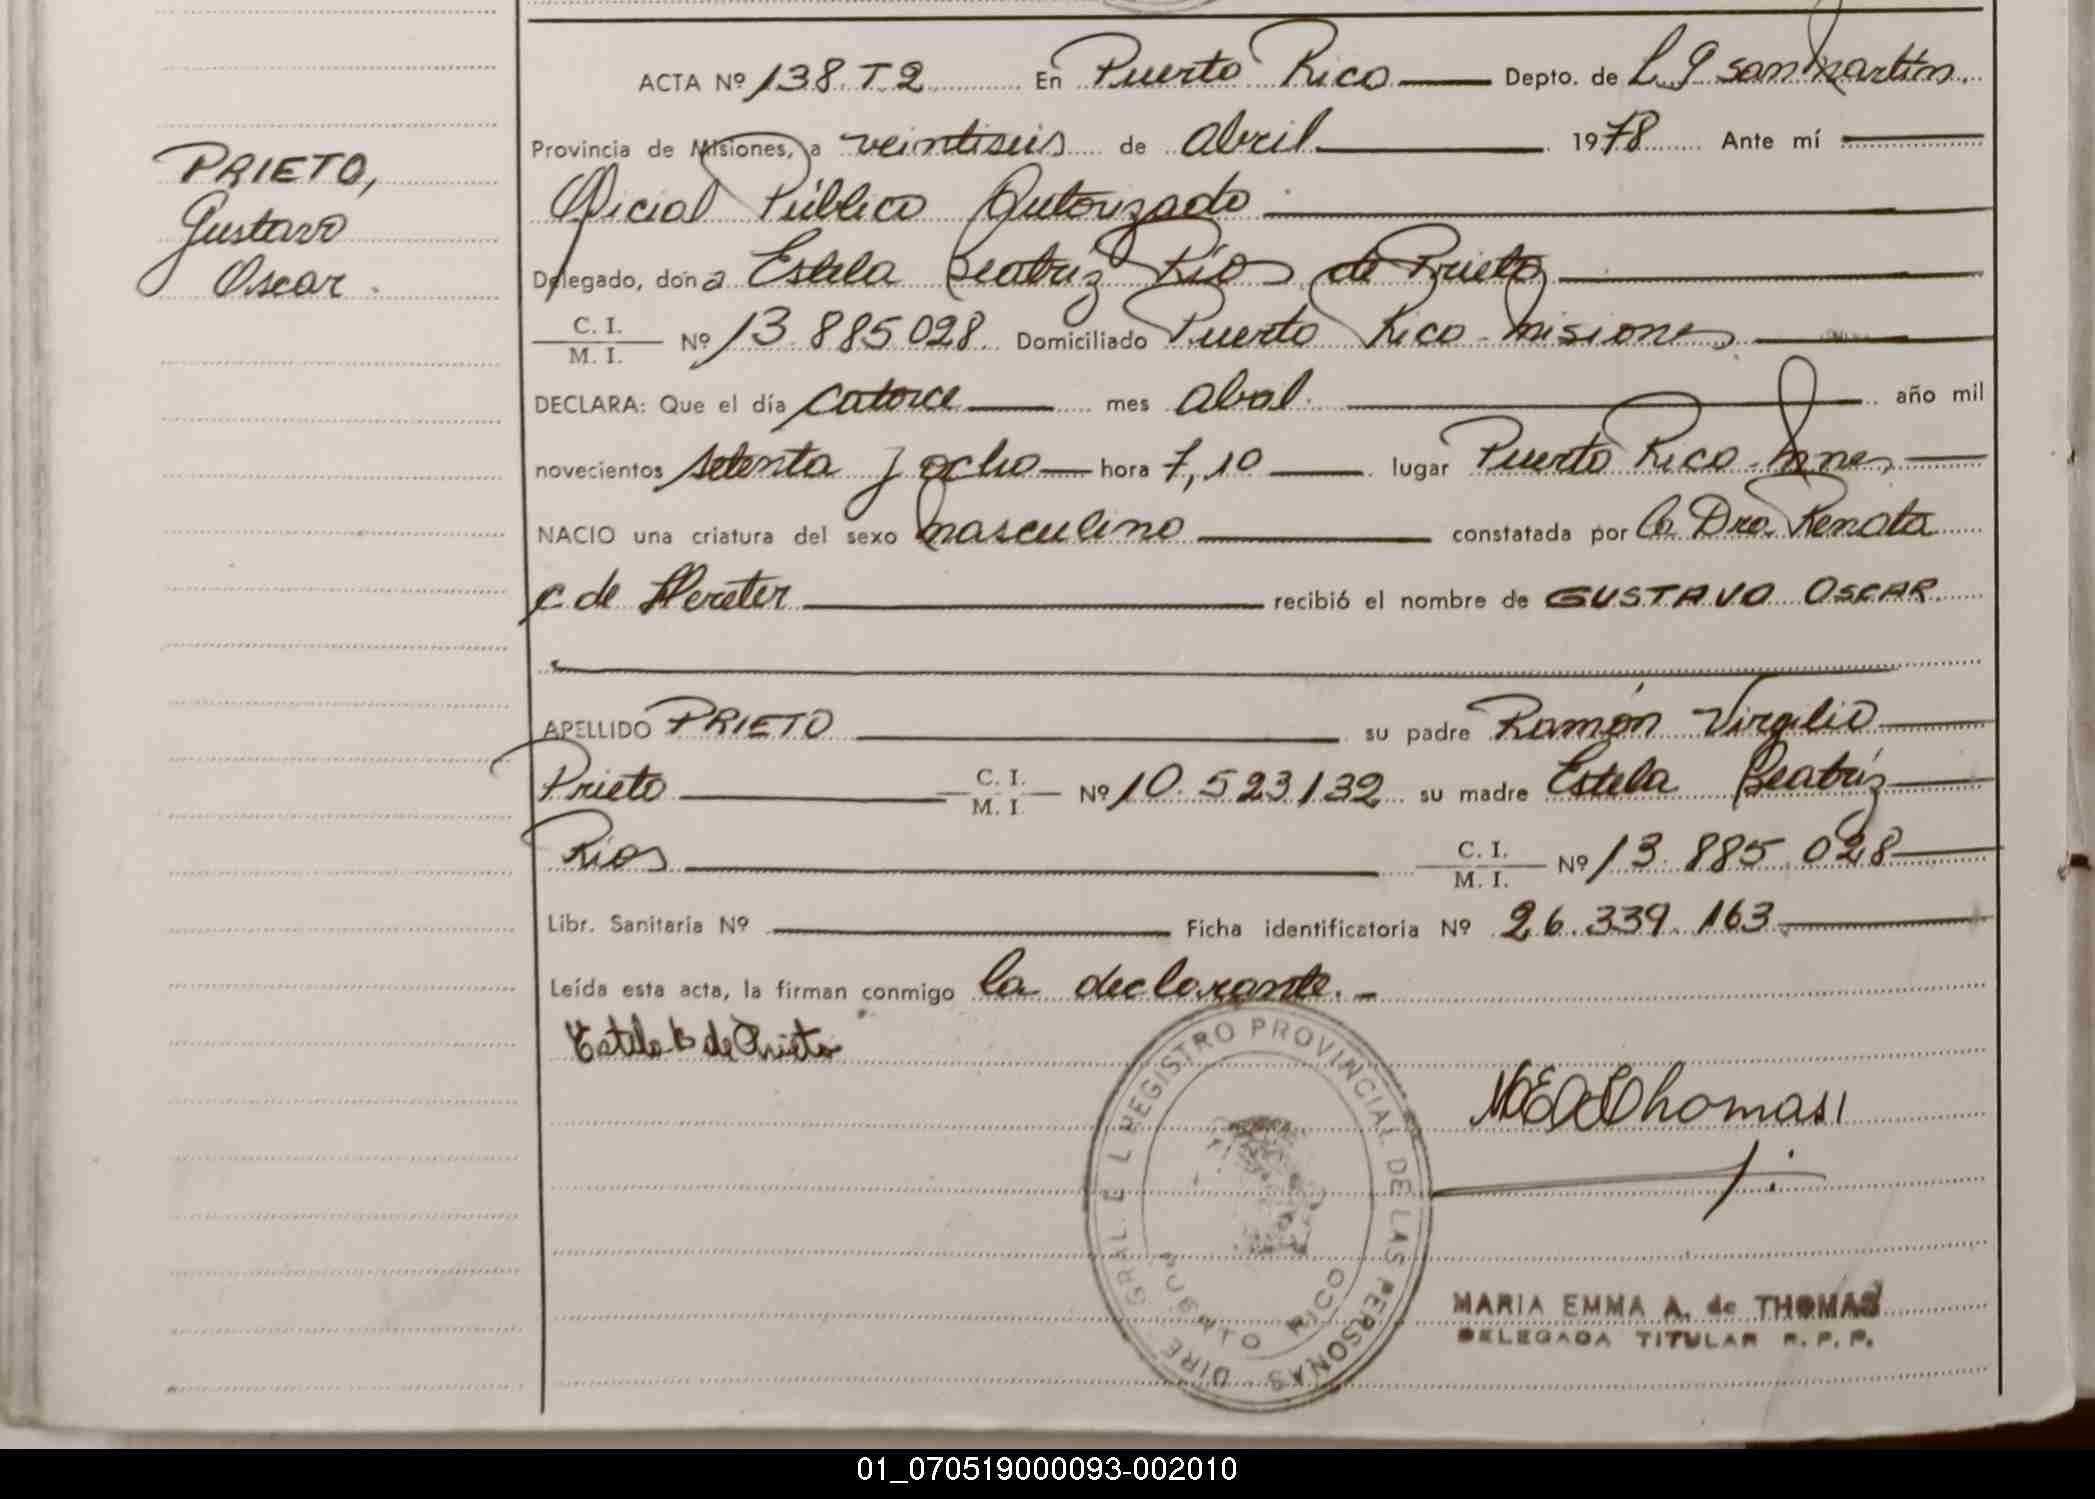 PRIETO,
Gustavo
Oscar.
ACTA Nº 138. T 2 En Puerto Rico Depto. de L. G San Martín.
Provincia de Misiones, a veintiseis de abril 1978 Ante mí
Oficial Público Autorizado
Delegado, dona Estela Beatriz Ríos de Prieto
C. I.
M. I. Nº 13.885028. Domiciliado Puerto Rico-Misiones
DECLARA: Que el día catorce mes abril. año mil
novecientos setenta y ocho hora 7,10 lugar Puerto Rico-Mnes
NACIO una criatura del sexo masculino constatada por la Dra. Renata
C. de recibió el nombre de GUSTAVO OSCAR.
APELLIDO PRIETO su padre Ramón Virgilio
Prieto C. I.
M. I. Nº 10.523132 su madre Estela Beatríz
Ríos C. I.
M. I. Nº 13.885.028
Libr. Sanitaria Nº Ficha identificatoria Nº 26.339.163
Leída esta acta, la firman conmigo la declarante.-
Estela de Prieto
Thomas
DIRE GRAL DEL REGISTRO PROVINCIAL DE LAS PERSONAS
PUERTO RICO
MARIA EMMA A. de THOMAS
DELEGADA TITULAR R. P. P.
01_070519000093-002010